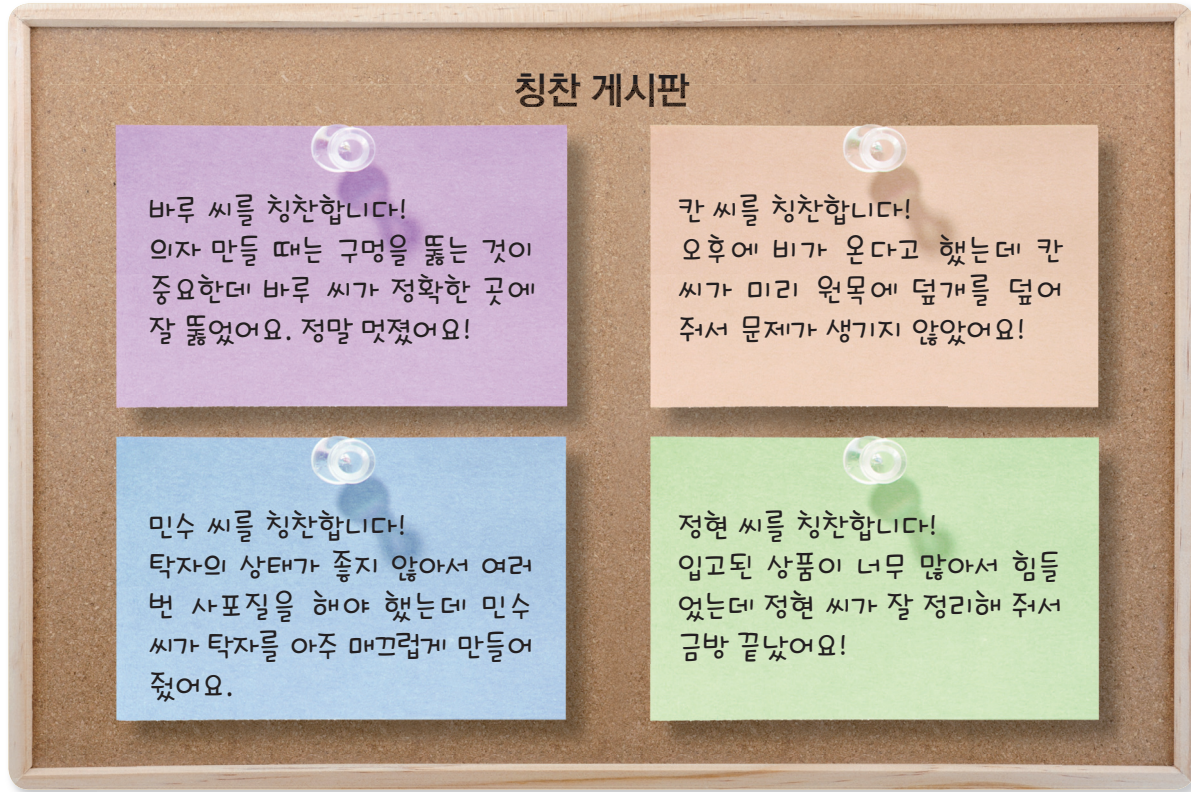 칭찬 게시판
바루 씨를 칭찬합니다!
의자 만들 때는 구멍을 뚫는 것이
중요한데 바루 씨가 정확한 곳에
잘 뚫었어요. 정말 멋졌어요!
칸 씨를 칭찬합니다!
오후에 비가 온다고 했는데 칸
씨가 미리 원목에 덮개를 덮어
줘서 문제가 생기지 않았어요!
민수 씨를 칭찬합니다!
탁자의 상태가 좋지 않아서 여러
번 사포질을 해야 했는데 민수
씨가 탁자를 아주 매끄럽게 만들어
줬어요.
정현 씨를 칭찬합니다!
입고된 상품이 너무 많아서 힘들
었는데 정현 씨가 잘 정리해 줘서
금방 끝났어요!